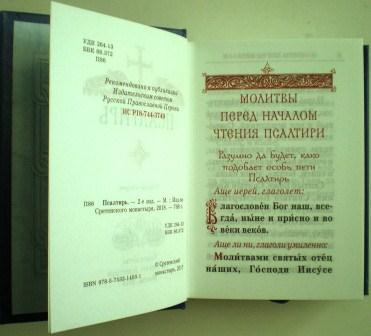 УДК 264-13
ББК 86.372
П86
Рекомендовано к публикации
Издательским советом
Русской Православной Церкви
ИС Р18-744-3743
П86 Псалтирь. — 2-е изд. — М. : Изд-во
Сретенского монастыря, 2018. — 768 с.
УДК 264-13
ББК 86.372
© Сретенский
монастырь,
ISBN 978-5-7533-1469-1
МОЛИТВЫ
ПЕРЕД НАЧАЛОМ
ЧТЕНИЯ ПСАЛТИРИ
Разумно да будет, како
подобает особь пети
Псалтирь
Аще иерей, глаголет:
Благослове́н Бог наш, все-
гда́, ны́не и при́сно и во
ве́ки веко́в.
Аще ли ни, глаголи умиленно:
Моли́твами святы́х оте́ц
на́ших, Го́споди Иису́се